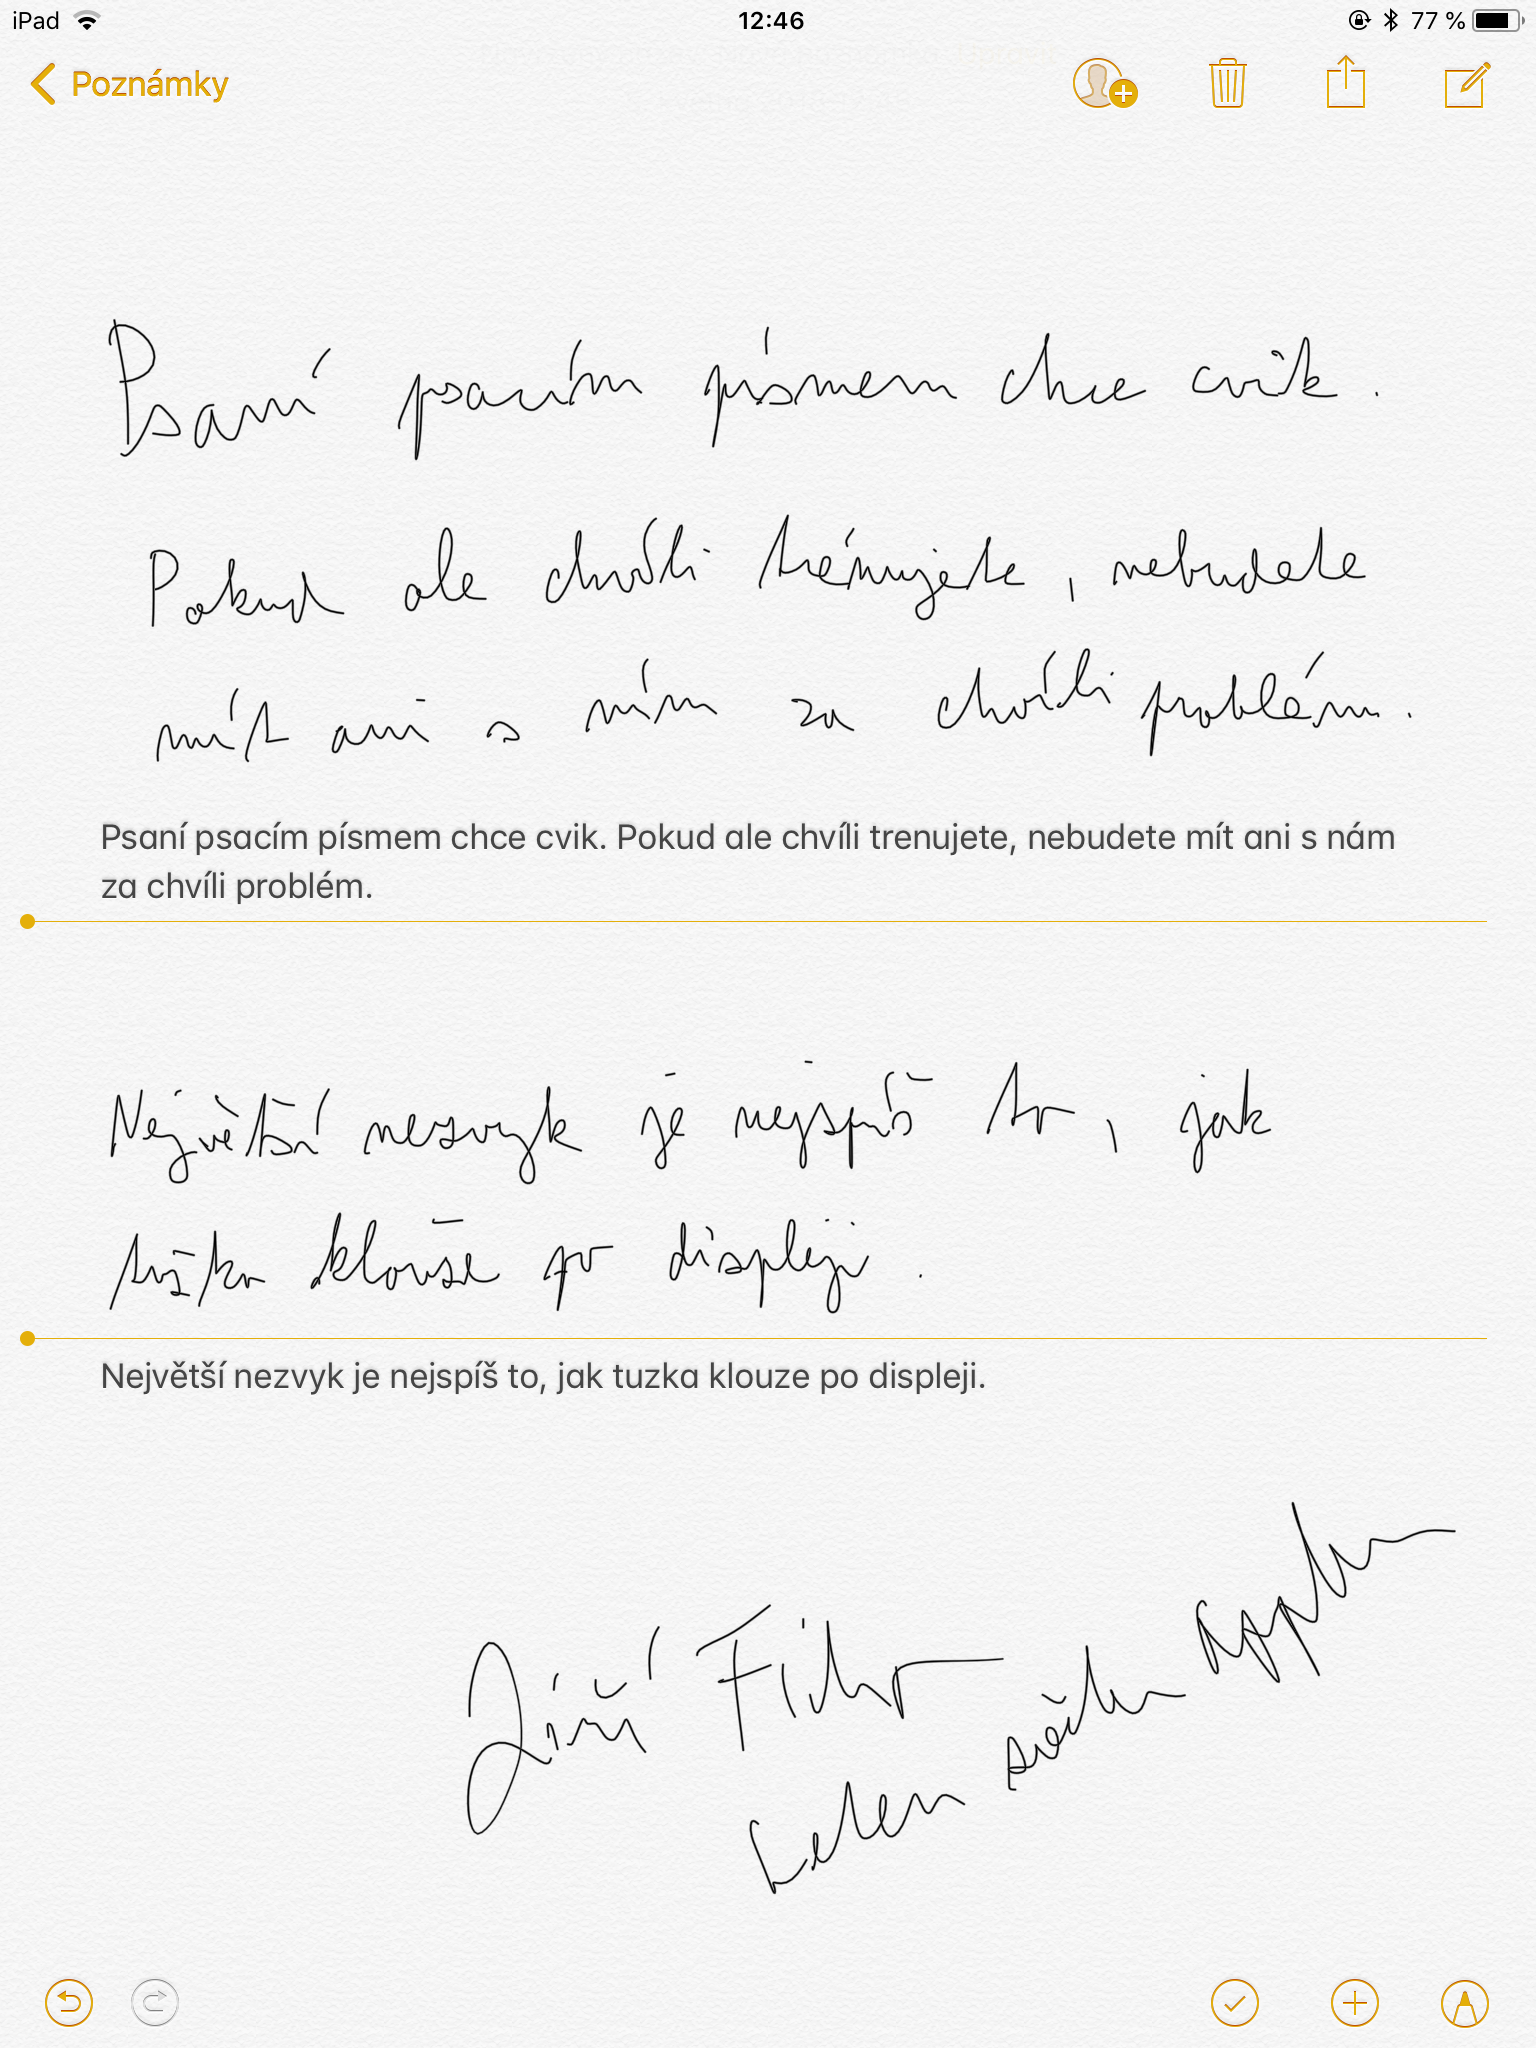 iPad 12:46 77 %
Poznámky
Psaní psacím písmem chce cvik.
Pokud ale chvíli trénujete, nebudete
mít ani s ním za chvíli problém.
Psaní psacím písmem chce cvik. Pokud ale chvíli trenujete, nebudete mít ani s nám
za chvíli problém.
Největší nezvyk je nejspíš to, jak
tužka klouže po displeji.
Největší nezvyk je nejspíš to, jak tuzka klouze po displeji.
Jiří